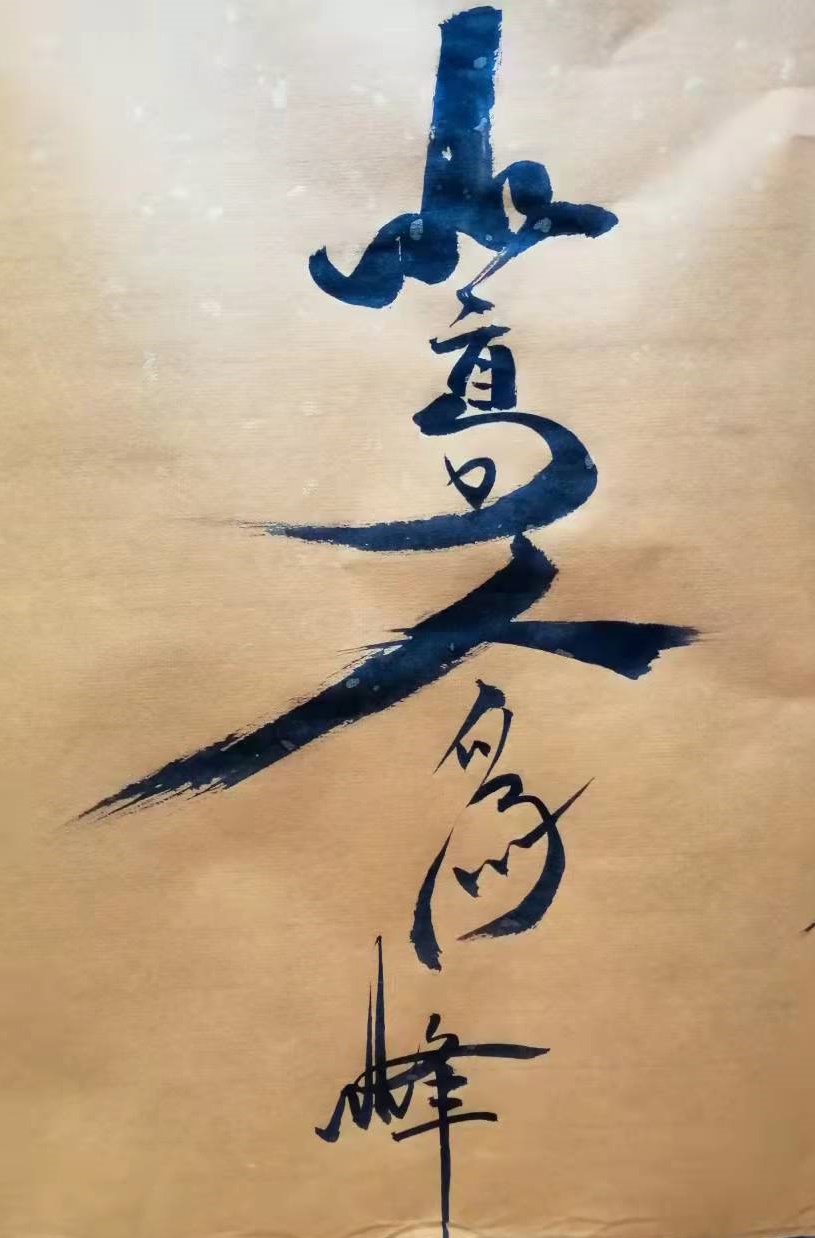 山高人為峰